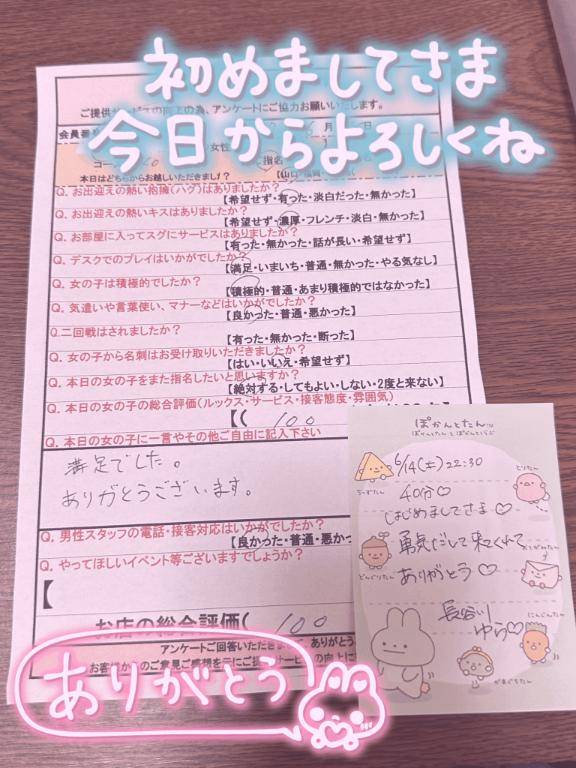 初めましてさま
今日からよろしくね
ご提供サービスの向上の為、アンケートにご協力お願いいたします。
会員番
月
女性
コー
指名
本日はどちらからお越しいただきました?
Q. お出迎えの熱い抱擁(ハグ)はありましたか?
【希望せず・有った・淡白だった・無かった】
Q. お出迎えの熱いキスはありましたか?
【希望せず・濃厚・フレンチ・淡白・無かった】
Q. お部屋に入ってスグにサービスはありましたか?
【有った・無かった・話が長い・希望せず】
Q. デスクでのプレイはいかがでしたか?
【満足・いまいち・普通・無かった・やる気なし】
Q. 女の子は積極的でしたか?
【積極的・普通・あまり積極的ではなかった】
Q. 気遣いや言葉使い、マナーなどはいかがでしたか?
【良かった・普通・悪かった】
Q.二回戦はされましたか?
【有った・無かった・断った】
Q. 女の子から名刺はお受け取りいただきましたか?
【はい・いいえ・希望せず】
Q. 本日の女の子をまた指名したいと思いますか?
【絶対する・してもよい・しない・2度と来ない】
Q. 本日の女の子の総合評価(ルックス・サービス・接客態度・雰囲気)
【( 100
Q. 本日の女の子に一言やその他ご自由に記入下さい
満足でした。
ありがとうございます。
Q. 男性スタッフの電話・接客対応はいかがでしたか?
【良かった・普通・悪かっ
Q. やってほしいイベント等ございますでしょうか?
【
お店の総合評価( 100
アンケートご回答いただきま
ありがとう
お客様からのご意見ご感想を元にご提
サービスの向上に
ぽかんとたん
6/14(土)22:30
40分♡
はじめましてさま♡
勇気だして来てくれて
ありがとう♡
長谷川
ゆら♡
ちーずたん
とりたん
どんぐりたん
おてがみたん
にんじんたん
がまぐちたん
ありがとう